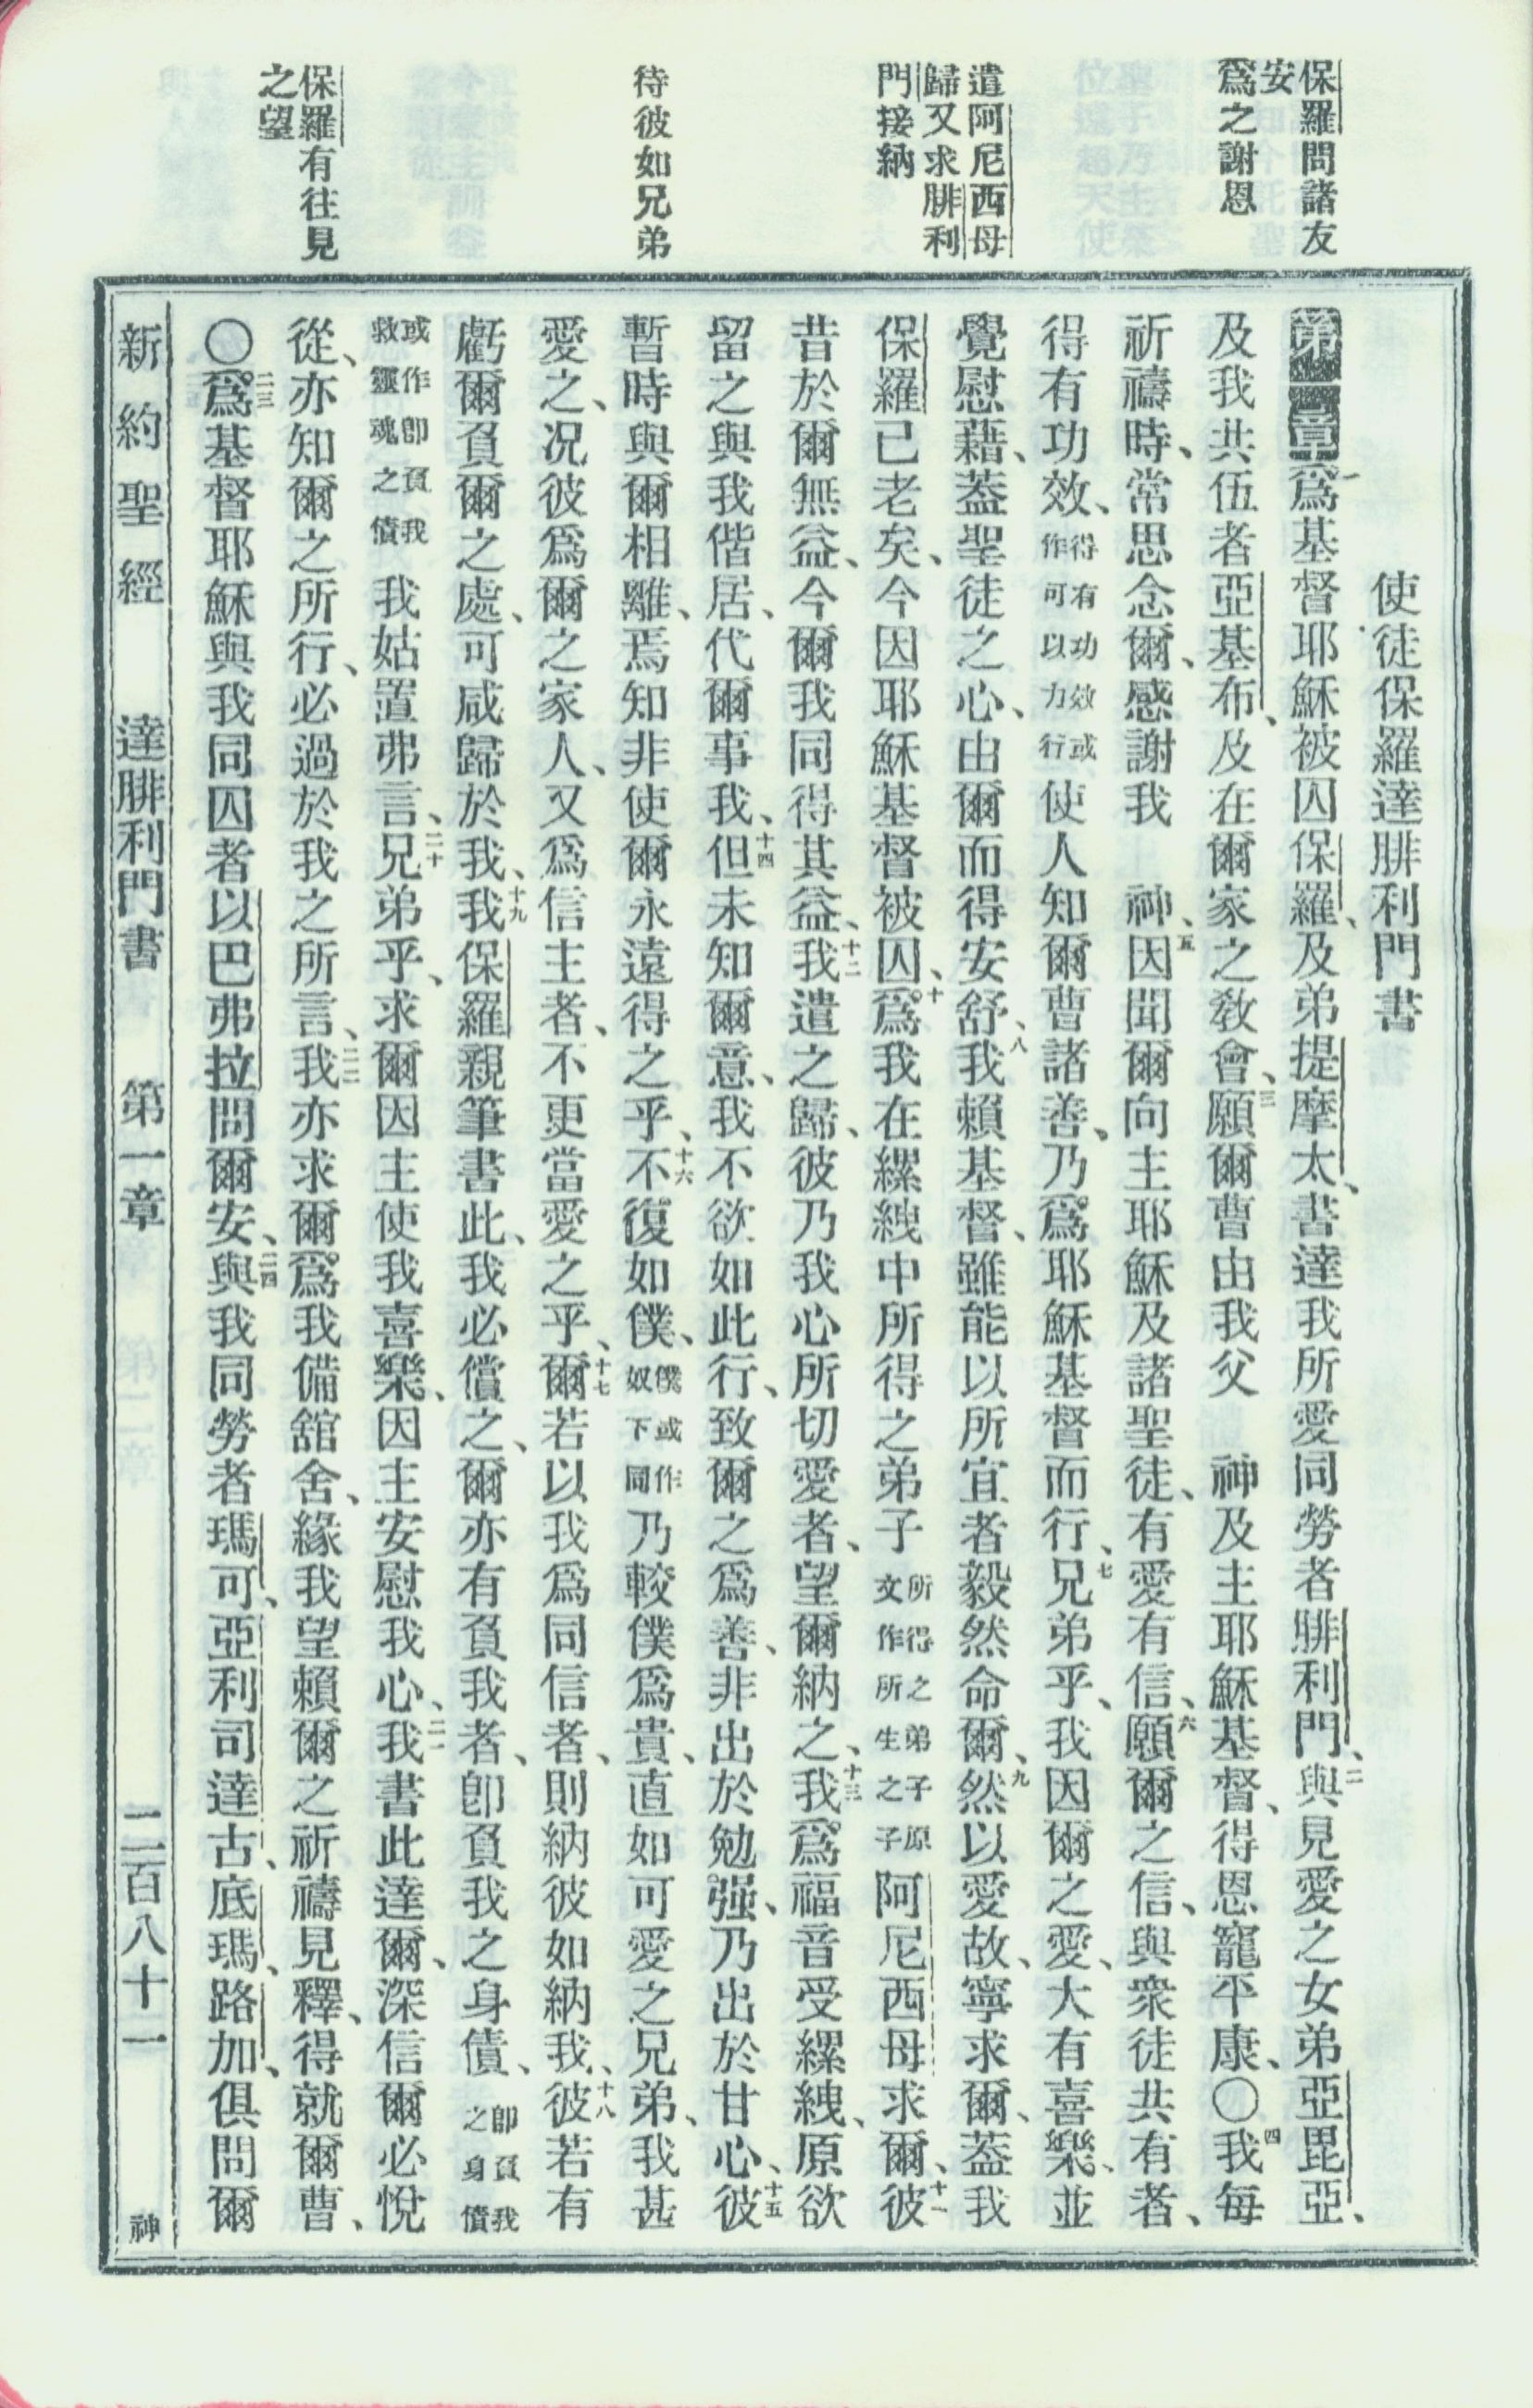 保羅問諸友
安
爲之謝恩
遣阿尼西母
歸又求腓利
門接納
待彼如兄弟
保羅有往見
之望
使徒保羅達腓利門書
第一章一爲基督耶穌被囚保羅、及弟提摩太、書達我所愛同勞者腓利門、二與見愛之女弟亞毘亞、
及我共伍者亞基布、及在爾家之教會、三願爾曹由我父 神及主耶穌基督、得恩寵平康、〇四我每
祈禱時、常思念爾、感謝我 神、五因聞爾向主耶穌及諸聖徒、有愛有信、六願爾之信、與衆徒共有者、
得有功效、得有功效或作可以力行使人知爾曹諸善、乃爲耶穌基督而行、七兄弟乎、我因爾之愛、大有喜樂、並
覺慰藉、蓋聖徒之心、由爾而得安舒、八我賴基督、雖能以所宜者毅然命爾、九然以愛故、寧求爾、蓋我
保羅已老矣、今因耶穌基督被囚、十爲我在縲絏中所得之弟子所得之弟子原文作所生之子阿尼西母求爾、十一彼
昔於爾無益、今爾我同得其益、十二我遣之歸、彼乃我心所切愛者、望爾納之、十三我爲福音受縲絏、原欲
留之與我偕居、代爾事我、十四但未知爾意、我不欲如此行、致爾之爲善、非出於勉强、乃出於甘心、十五彼
暫時與爾相離、焉知非使爾永遠得之乎、十六不復如僕、僕或作奴下同乃較僕爲貴、直如可愛之兄弟、我甚
愛之、况彼爲爾之家人、又爲信主者、不更當愛之乎、十七爾若以我爲同信者、則納彼如納我、十八彼若有
虧爾負爾之處、可咸歸於我、十九我保羅親筆書此、我必償之、爾亦有負我者、卽負我之身債、卽負我之身債
或作卽負我救靈魂之債我姑置弗言、二十兄弟乎、求爾因主使我喜樂、因主安慰我心、二一我書此達爾、深信爾必悅
從、亦知爾之所行、必過於我之所言、二二我亦求爾爲我備舘舍、緣我望賴爾之祈禱見釋、得就爾曹、
〇二三爲基督耶穌與我同囚者以巴弗拉問爾安、二四與我同勞者瑪可、亞利司達古、底瑪、路加、俱問爾
新約聖經 達腓利門書 第一章 二百八十一 神